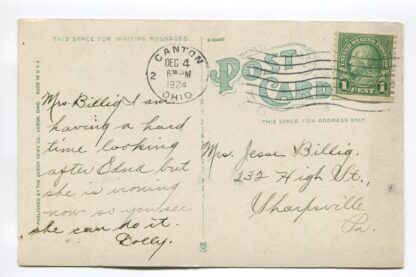 THIS SPACE FOR WRITING MESSAGES
CANTON
DEC 4
6 PM
1924
OHIO
2
POST
CARD
UNITED STATES POSTAGE
1 CENT 1
THIS SPACE FOR ADDRESS ONLY
PUBLISHED BY THE NEWS CO., AKRON, OHIO. MADE IN U.S.A.
Mrs. Billig I am
having a hard
time looking
after Edna but
she is ironing
now so you see
she can do it.
Dolly.
Mrs. Jesse Billig.
232 High St.,
Sharpsville
Pa.